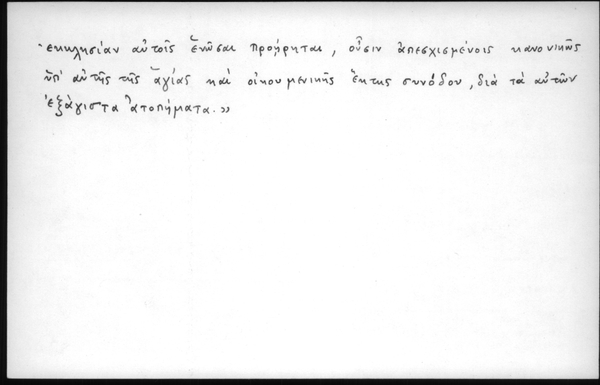 ἐκκλησίαν αὐτοῖς ἑνῶσαι προῄρηται, οὖσιν ἀπεσχισμένοις κανονικῶς
ὑπ' αὐτῆς τῆς ἁγίας καὶ οἰκουμενικῆς ἕκτης συνόδου, διὰ τὰ αὐτῶν
ἐξάγιστα ἀτοπήματα.»